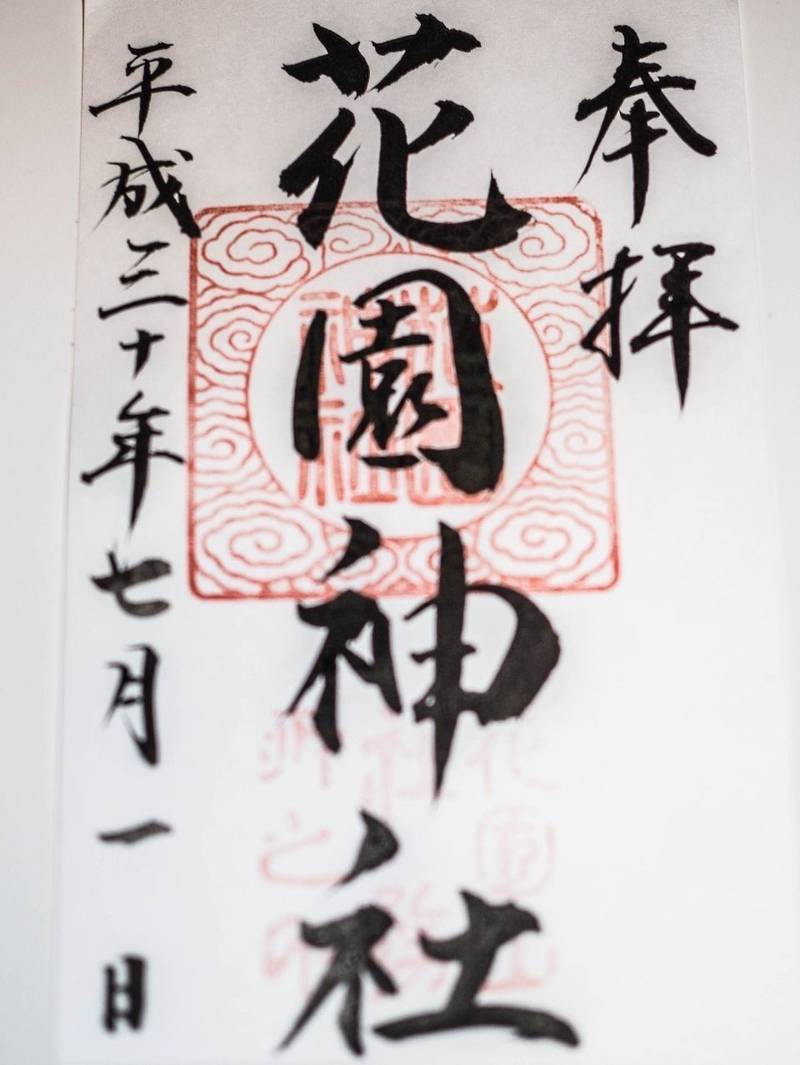 奉拝
花園神社
平成三十年七月一日